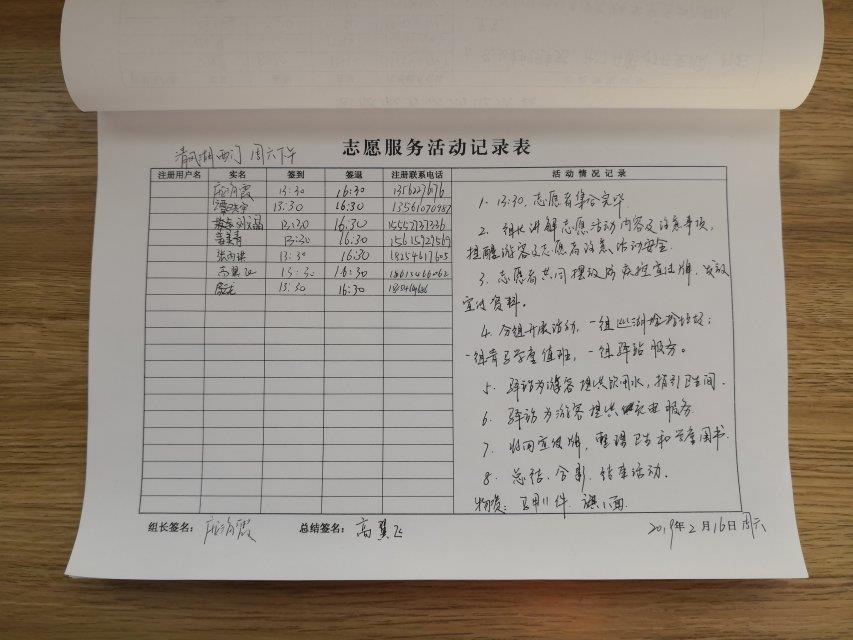 清风湖西门 周六下午
志愿服务活动记录表
注册用户名 实名 签到 签退 注册联系电话 活动情况记录
13:30 16:30
13:30 16:30 13561070987
13:30 16:30 15552737336
13:30 16:30 15615927569
13:30 16:30 18254617605
高翼飞 13:30 16:30 18615466062
13:30 16:30
1. 13:30, 志愿者集合完毕.
2. 组长讲解志愿活动内容及注意事项,
提醒游客及志愿者注意活动安全.
3. 志愿者共同摆放防疾控宣传牌、发放
宣传资料.
4. 分组开展活动,一组巡湖捡拾垃圾;
一组青马学堂值班,一组驿站服务。
5. 驿站为游客提供饮用水,指引卫生间.
6. 驿站为游客提供充电服务.
7. 收回宣传牌,整理卫生和学堂图书.
8. 总结、合影、结束活动.
物资: 马甲11件 旗1面.
组长签名: 总结签名: 高翼飞 2019年2月16日 周六